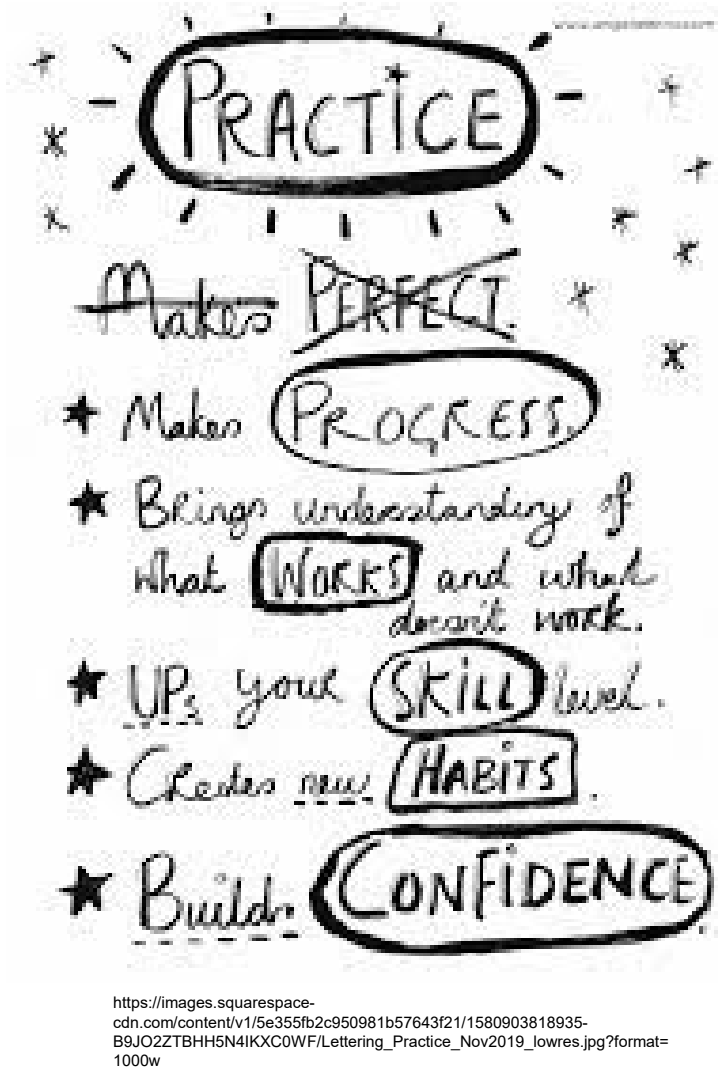 PRACTICE
Makes PERFECT.
Makes PROGRESS.
Brings understanding of
what WORKS and what
doesn't work.
UPs your SKILL level.
Creates new HABITS.
Builds CONFIDENCE.
https://images.squarespace-
cdn.com/content/v1/5e355fb2c950981b57643f21/1580903818935-
B9JO2ZTBHH5N4IKXC0WF/Lettering_Practice_Nov2019_lowres.jpg?format=
1000w